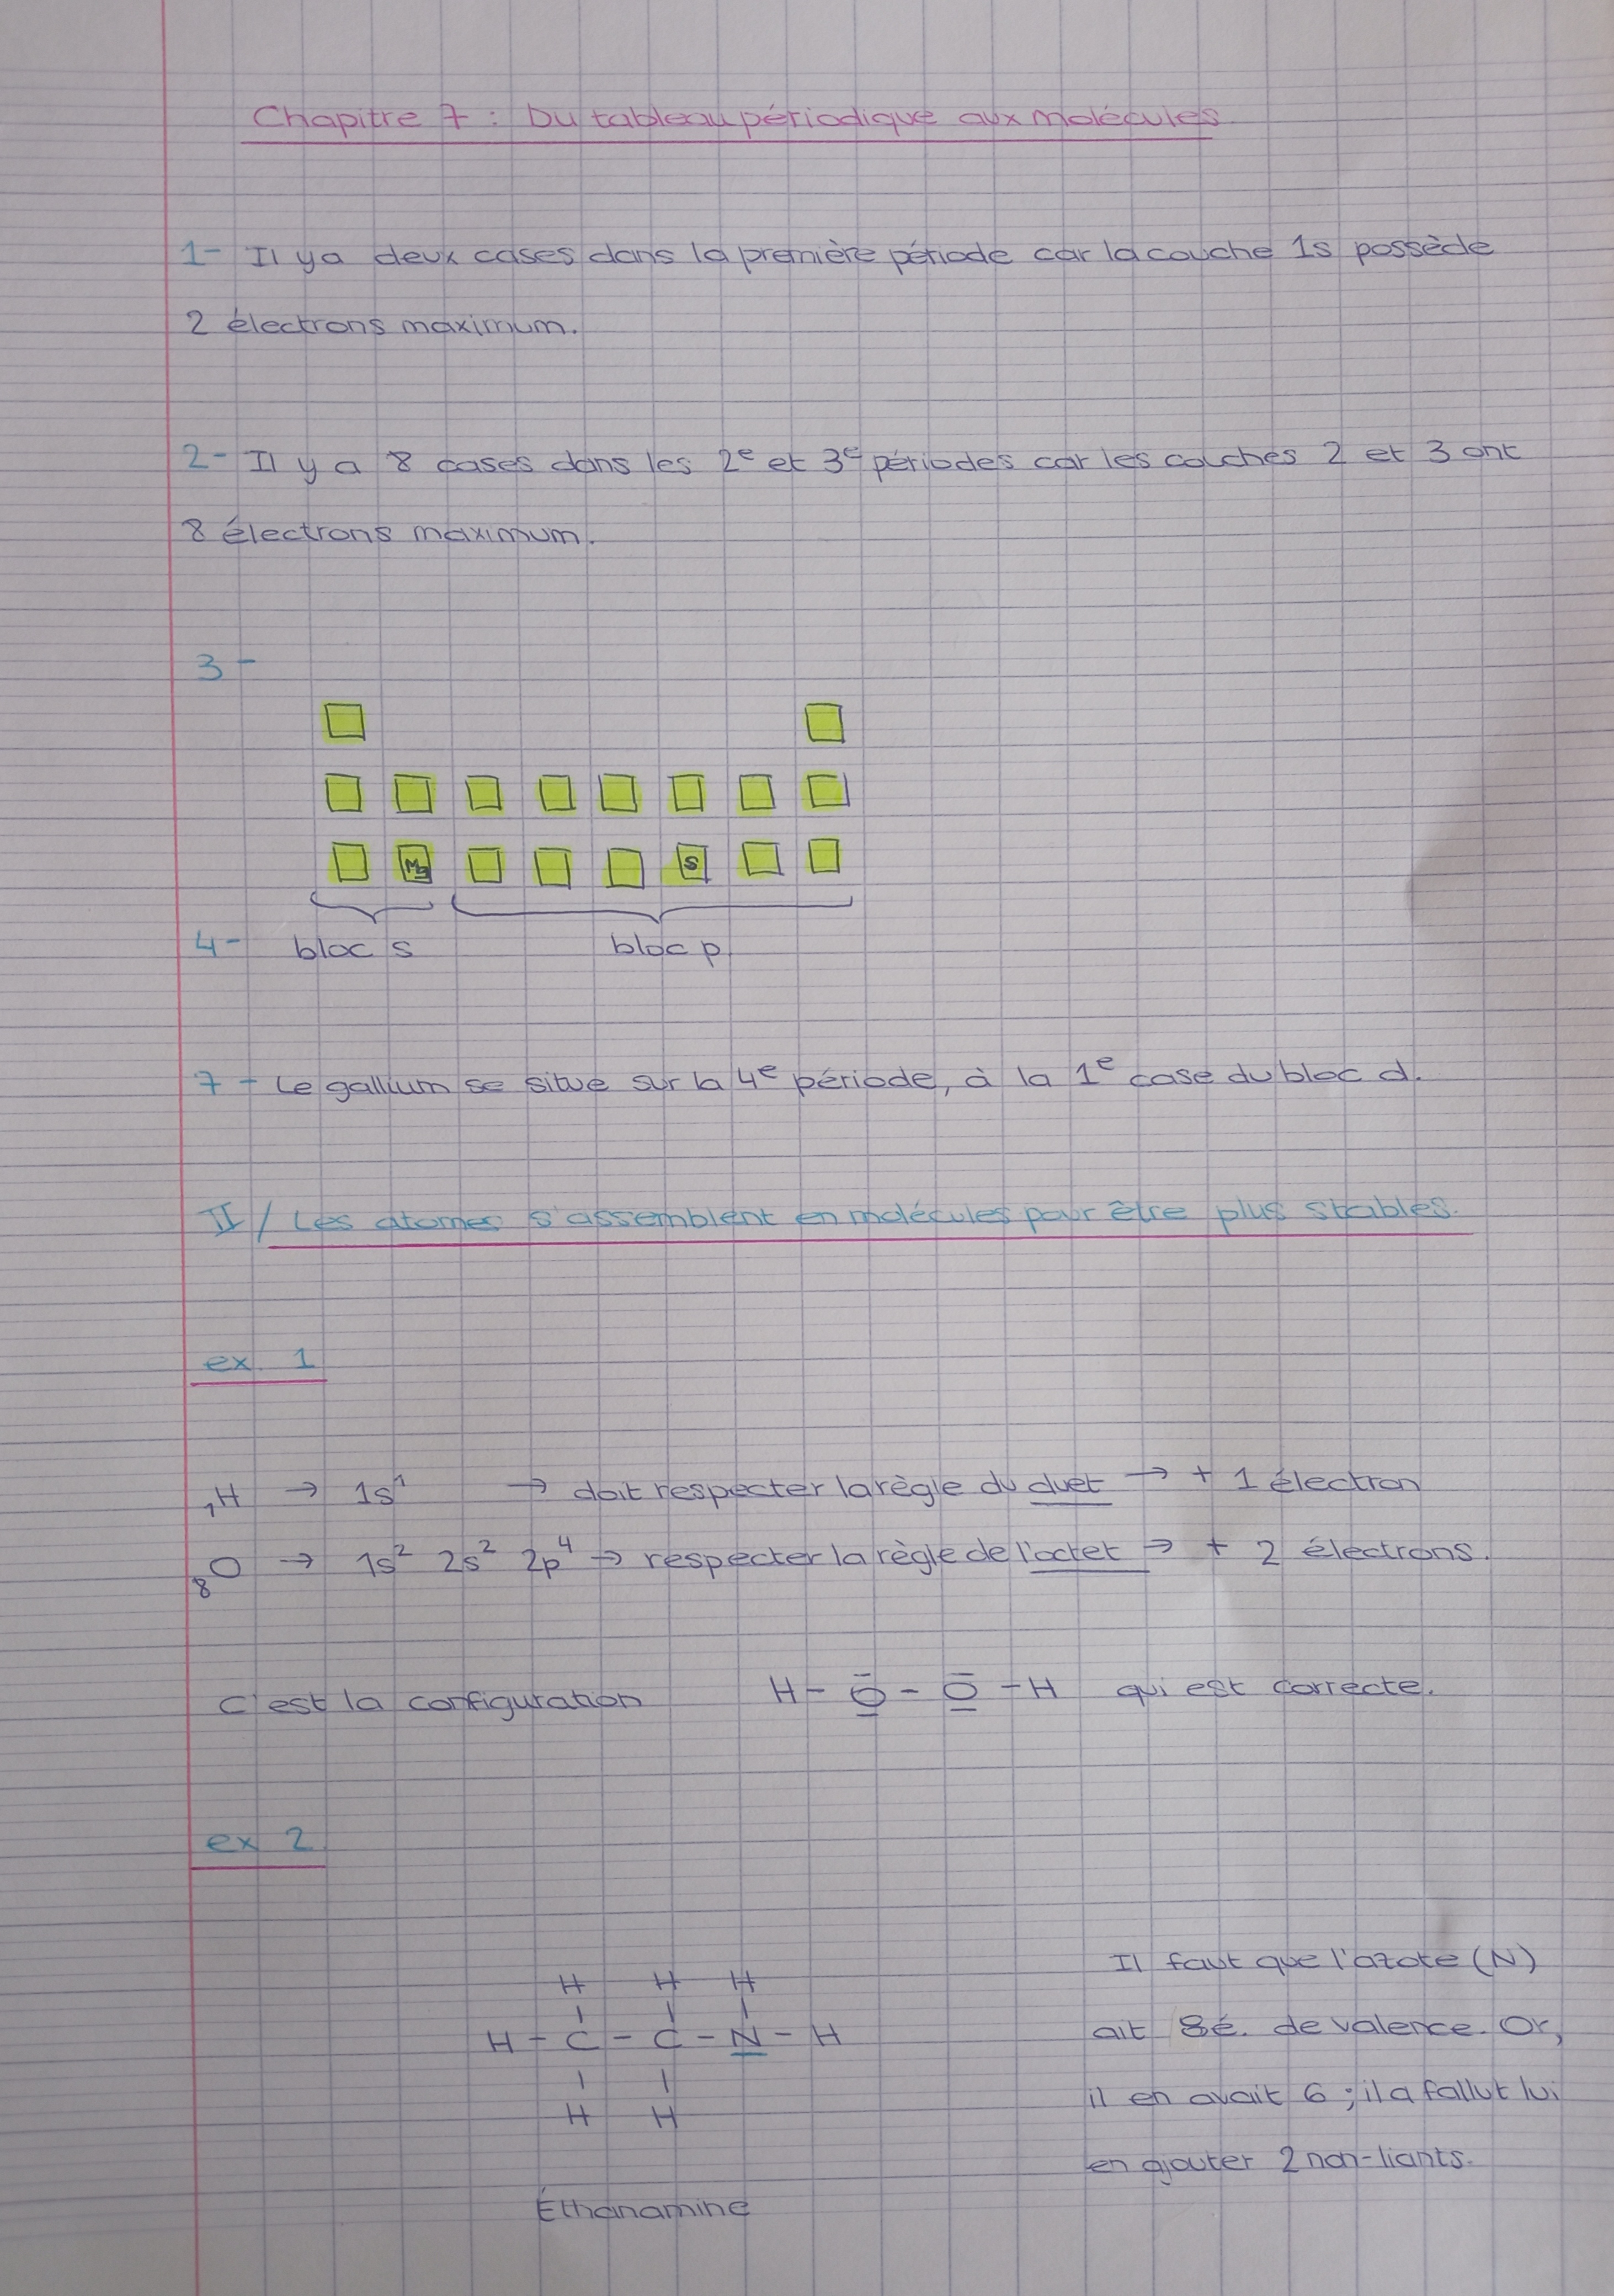 Chapitre 7 : Du tableau périodique aux molécules
1- Il y a deux cases dans la première période car la couche 1s possède
2 électrons maximum.
2- Il y a 8 cases dans les 2e et 3e périodes car les couches 2 et 3 ont
8 électrons maximum.
3-
Mg S
4- bloc s bloc p
7- Le gallium se situe sur la 4e période, à la 1e case du bloc d.
II/ Les atomes s'assemblent en molécules pour être plus stables.
ex. 1
₁H → 1s¹ → doit respecter la règle du duet → + 1 électron
₈O → 1s² 2s² 2p⁴ → respecter la règle de l'octet → + 2 électrons.
C'est la configuration H - O - O - H qui est correcte.
ex 2
H H H
H - C - C - N - H
H H
Éthanamine
Il faut que l'azote (N)
ait 8é. de valence. Or,
il en avait 6 ; il a fallut lui
en ajouter 2 non-liants.